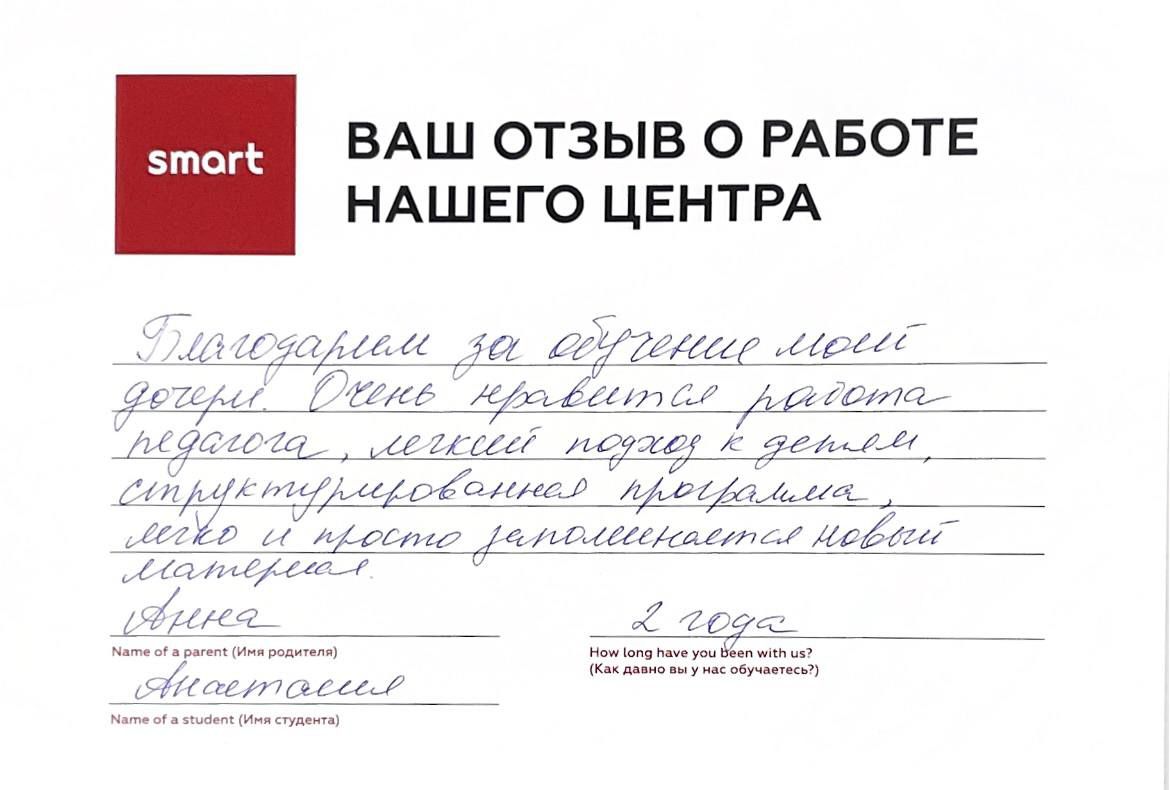 smart
ВАШ ОТЗЫВ О РАБОТЕ
НАШЕГО ЦЕНТРА
Благодарим за обучение моей
дочери. Очень нравится работа
педагога, легкий подход к детям,
структурированная программа,
легко и просто запоминается новый
материал.
Анна
Name of a parent (Имя родителя)
2 года
How long have you been with us?
(Как давно вы у нас обучаетесь?)
Анастасия
Name of a student (Имя студента)